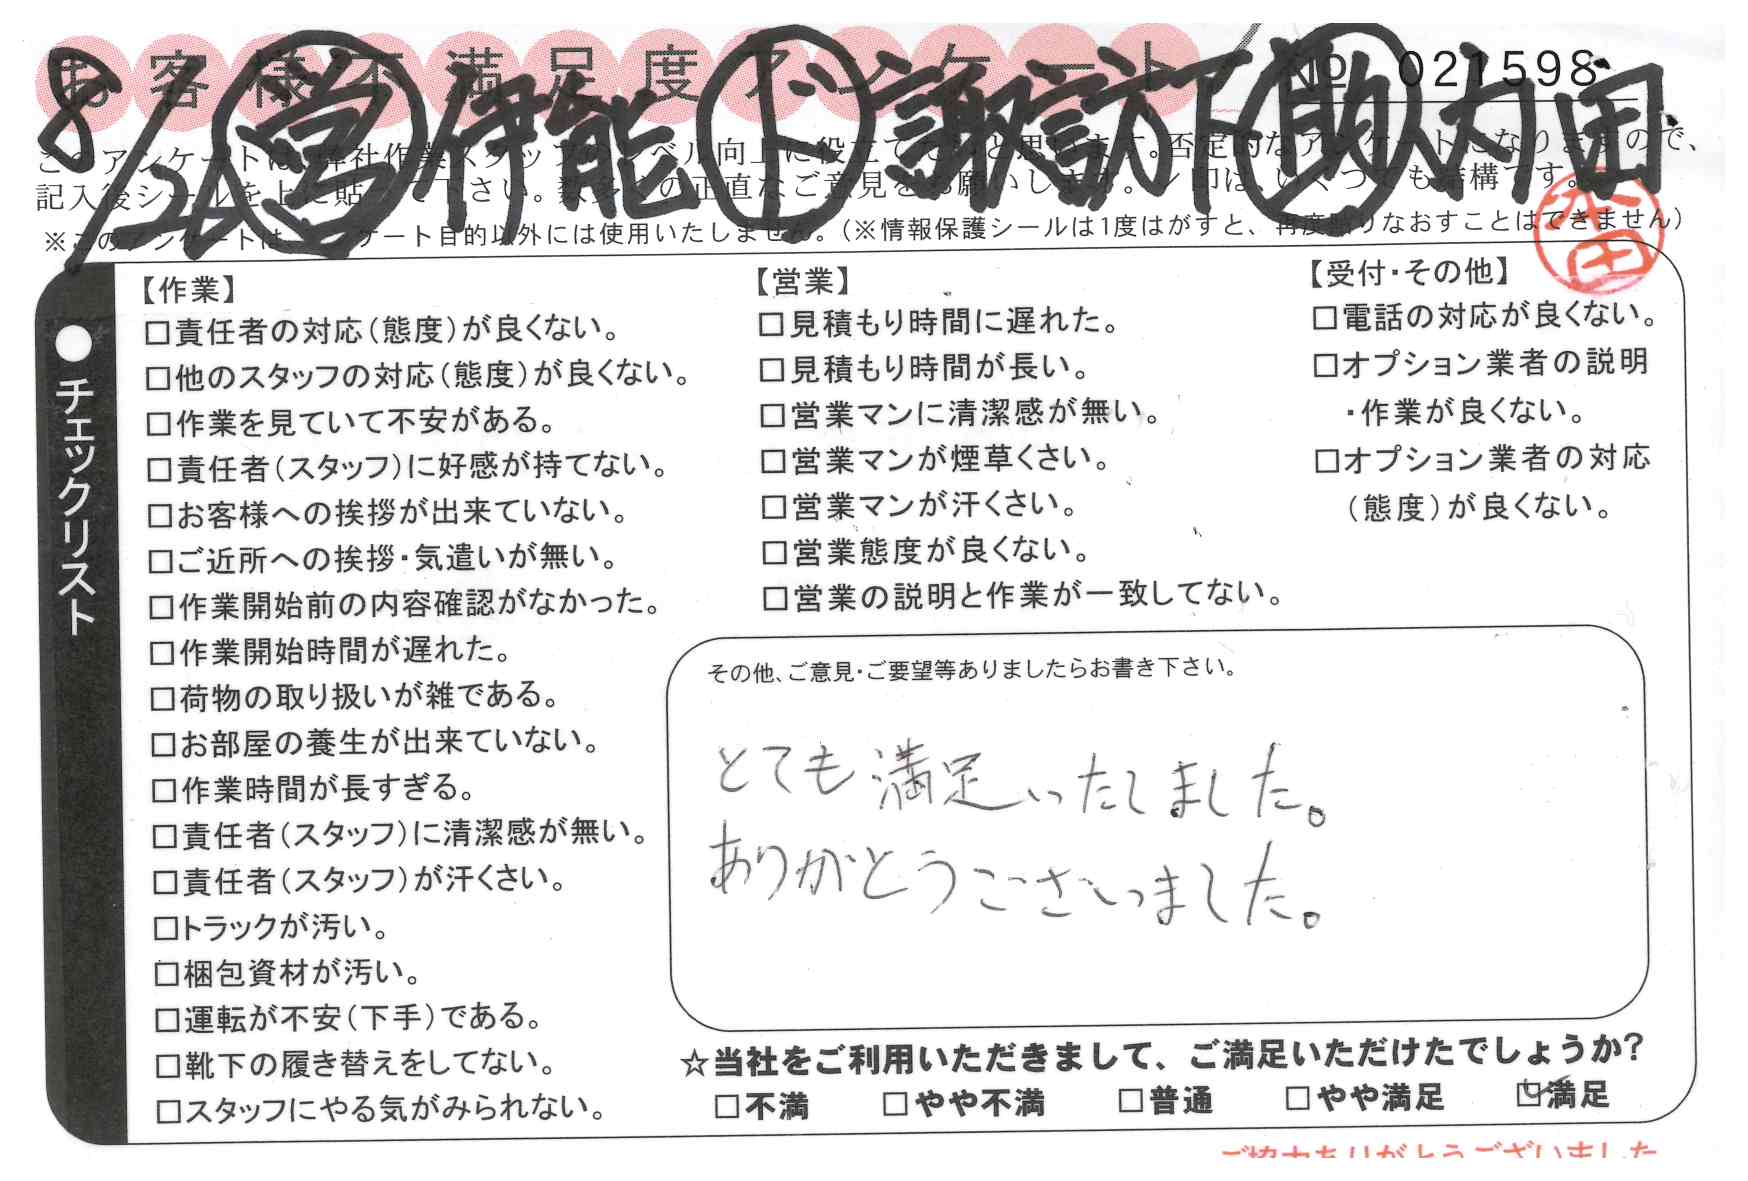 お客様不満足度アンケート
No 021598
8/26 営 伊能 ド 諏訪下 助 大内田
このアンケートは、弊社作業スタッフのレベル向上に役立てたいと思います。否定的なアンケートになりますので、
記入後シールを上に貼って下さい。数多くの正直なご意見をお願いします。レ印は、いくつでも結構です。
※このアンケートは、アンケート目的以外には使用いたしません。(※情報保護シールは1度はがすと、再度貼りなおすことはできません)
●チェックリスト
【作業】
□責任者の対応(態度)が良くない。
□他のスタッフの対応(態度)が良くない。
□作業を見ていて不安がある。
□責任者(スタッフ)に好感が持てない。
□お客様への挨拶が出来ていない。
□ご近所への挨拶・気遣いが無い。
□作業開始前の内容確認がなかった。
□作業開始時間が遅れた。
□荷物の取り扱いが雑である。
□お部屋の養生が出来ていない。
□作業時間が長すぎる。
□責任者(スタッフ)に清潔感が無い。
□責任者(スタッフ)が汗くさい。
□トラックが汚い。
□梱包資材が汚い。
□運転が不安(下手)である。
□靴下の履き替えをしてない。
□スタッフにやる気がみられない。
【営業】
□見積もり時間に遅れた。
□見積もり時間が長い。
□営業マンに清潔感が無い。
□営業マンが煙草くさい。
□営業マンが汗くさい。
□営業態度が良くない。
□営業の説明と作業が一致してない。
【受付・その他】
□電話の対応が良くない。
□オプション業者の説明
・作業が良くない。
□オプション業者の対応
(態度)が良くない。
その他、ご意見・ご要望等ありましたらお書き下さい。
とても満足いたしました。
ありがとうございました。
☆当社をご利用いただきまして、ご満足いただけたでしょうか?
□不満 □やや不満 □普通 □やや満足 ☑満足
ご協力ありがとうございました